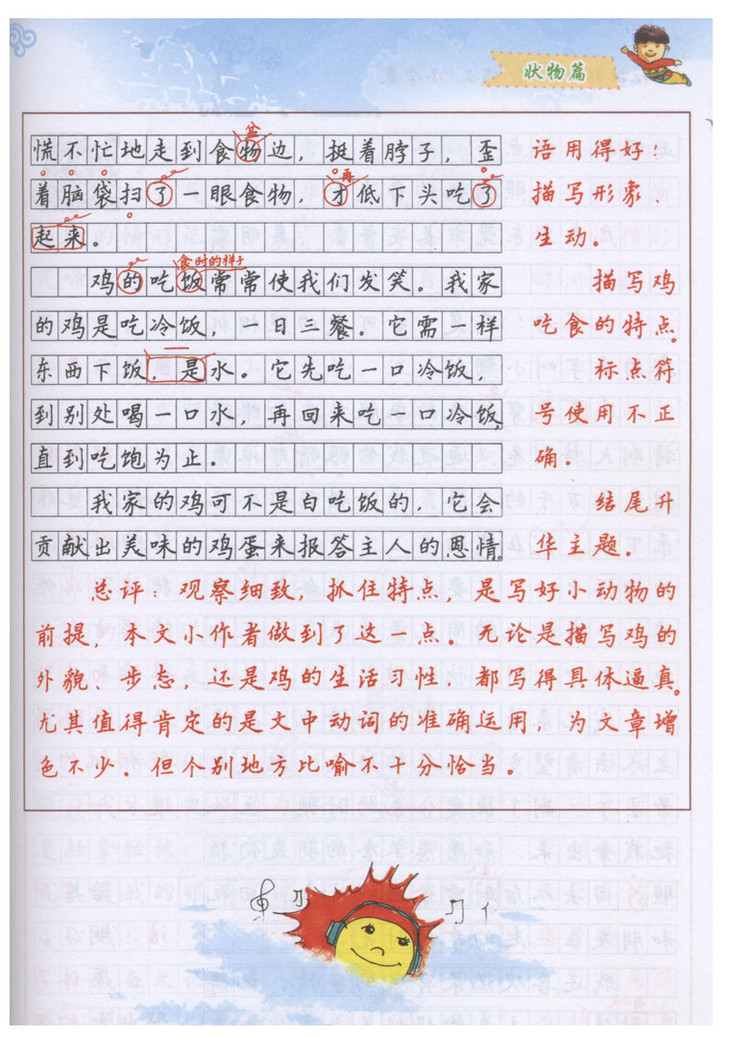 状物篇
慌不忙地走到食物边，挺着脖子，歪 语用得好！
盆
着脑袋扫了一眼食物，才低下头吃了 描写形象、
再
起来。 生动。
食时的样子
鸡的吃饭常常使我们发笑。我家 描写鸡
的鸡是吃冷饭，一日三餐。它需一样 吃食的特点。
东西下饭，是水。它先吃一口冷饭， 标点符
到别处喝一口水，再回来吃一口冷饭， 号使用不正
直到吃饱为止。 确。
我家的鸡可不是白吃饭的，它会 结尾升
贡献出美味的鸡蛋来报答主人的恩情。 华主题。
总评：观察细致，抓住特点，是写好小动物的
前提，本文小作者做到了这一点。无论是描写鸡的
外貌、步态，还是鸡的生活习性，都写得具体逼真。
尤其值得肯定的是文中动词的准确运用，为文章增
色不少．但个别地方比喻不十分恰当。